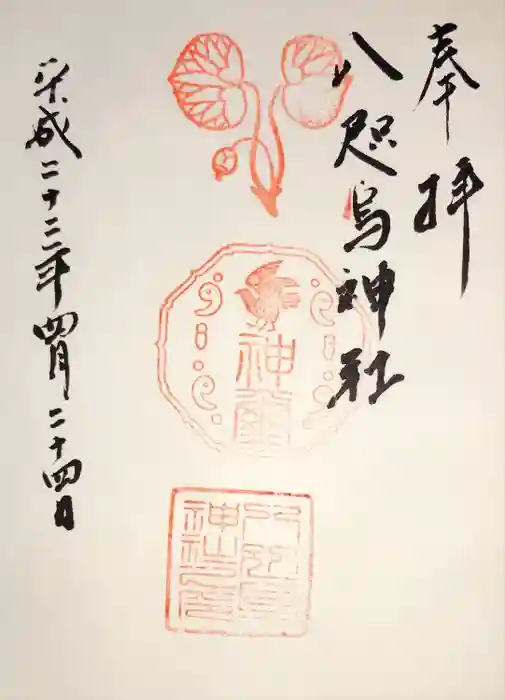 奉拝
八咫烏神社
平成二十三年四月二十四日
神璽
八咫烏
神社印